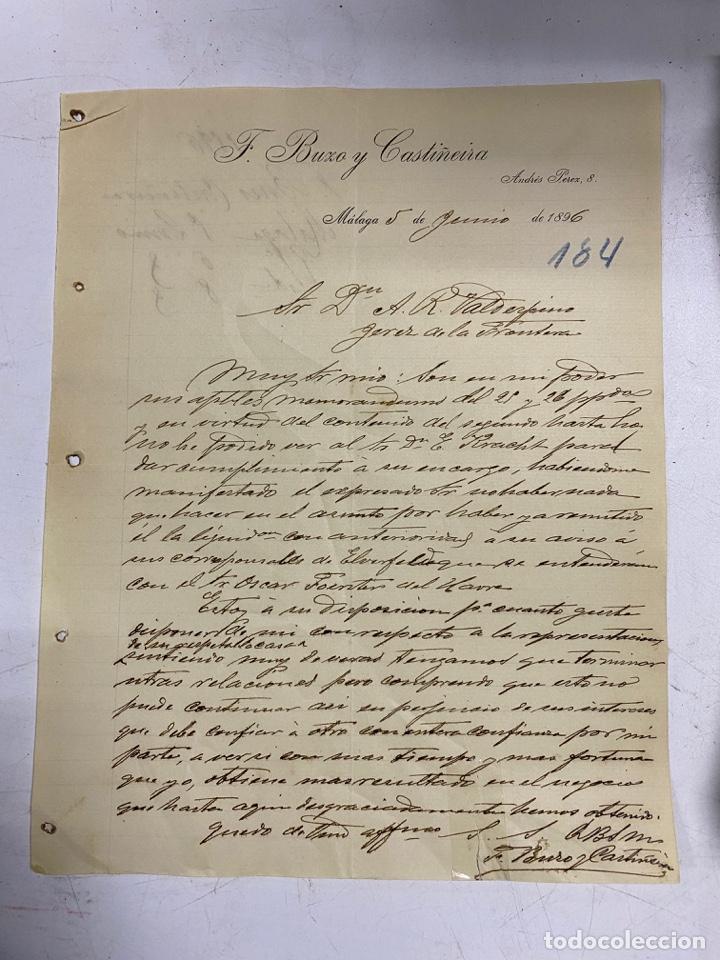 F. Buzo y Castiñeira
Andrés Perez, 8.
Málaga 5 de Junio de 1896
184
Sr Dn A. R. Valdespino
Jerez de la Frontera
Muy Sr mio: Son en mi poder
sus aptbles memorandums del 25 y 26 ppdo
y en virtud del contenido del segundo hasta hoy
no he podido ver al Sr Dn E. Kracht para
dar cumplimiento a su encargo, habiendome
manifestado el expresado Sr no haber nada
que hacer en el asunto por haber ya remitido
él la con anterioridad á su aviso á
sus corresponsales de Elverfeld que se entenderan
con el Sr Oscar Fuentes del Havre
Estoy á su disposicion pa cuanto guste
disponer de mi con respecto a la representacion
de su respetable casa
sintiendo muy de veras tengamos que terminar
ntras relaciones pero comprendo que esto no
puede continuar asi en perjuicio de sus intereses
que debe confiar á otro con entera confianza por mi
parte, a ver si con mas tiempo y mas fortuna
que yo, obtiene mas resultado en el negocio
que hasta aqui desgraciadamente hemos obtenido.
Quedo de Vmd affmo S. S. Q B S M
F. Buzo y Castiñeira
todocoleccion
todocoleccion.net